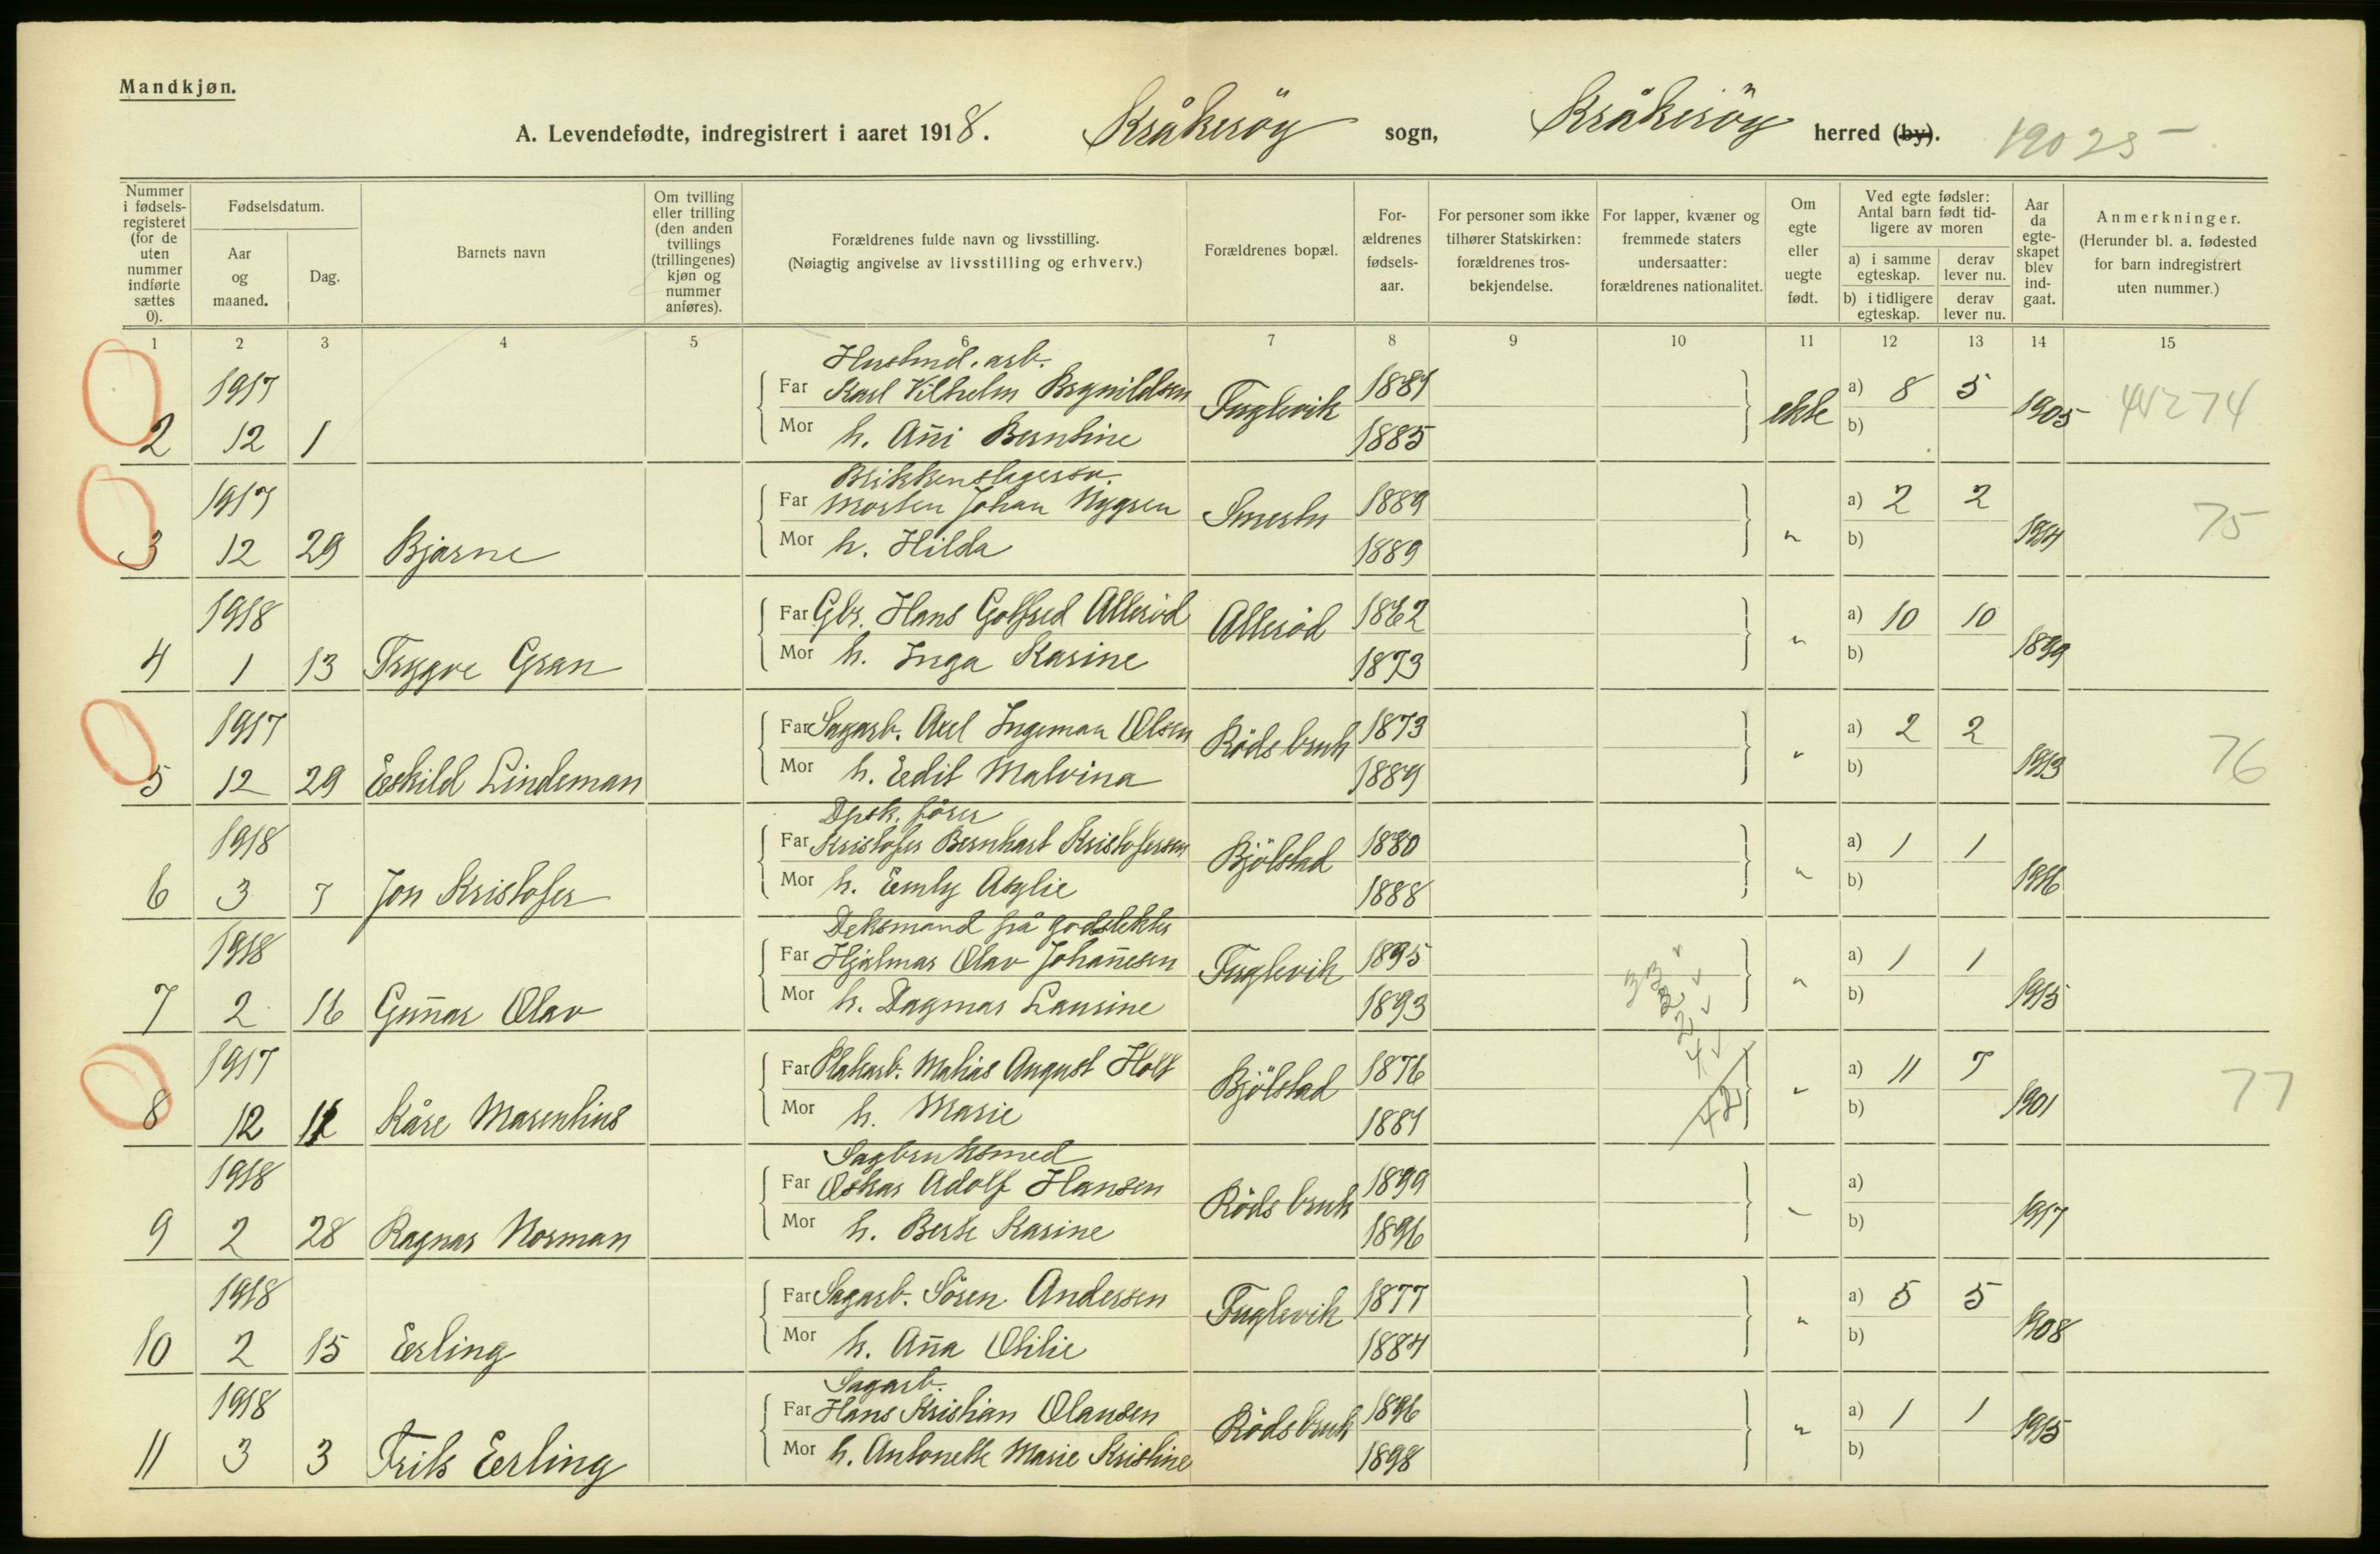 Mandkjøn.
A. Levendefødte, indregistrert i aaret 1918. Kråkeröy sogn, Kråkeröy herred (by). 19025
Nummer i fødsels-registeret (for de uten nummer indførte sættes 0).
Fødselsdatum.
Aar og maaned.
Dag.
Barnets navn
Om tvilling eller trilling (den anden tvillings (trillingenes) kjøn og nummer anføres).
Forældrenes fulde navn og livsstilling.
(Nøiagtig angivelse av livsstilling og erhverv.)
Forældrenes bopæl.
For-ældrenes fødsels-aar.
For personer som ikke tilhører Statskirken: forældrenes tros-bekjendelse.
For lapper, kvæner og fremmede staters undersaatter: forældrenes nationalitet.
Om egte eller uegte født.
Ved egte fødsler: Antal barn født tid-ligere av moren
a) i samme egteskap. derav lever nu.
b) i tidligere egteskap. derav lever nu.
Aar da egte-skapet blev ind-gaat.
Anmerkninger.
(Herunder bl. a. fødested for barn indregistrert uten nummer.)
1 2 3 4 5 6 7 8 9 10 11 12 13 14 15
1917 Far Karl Vilhelm Brynildsen Fuglevik 1881 ekte a) 8 5 1905 44274
2 12 1 Mor h. Añi Berntine 1885 b)
Blikkenslagersv.
1917 Far Morten Johan Nygren 1889 a) 2 2 1914 75
3 12 29 Bjarne Mor h. Hilda 1889 " b)
1918 Far Gbr. Hans Golfred Alleröd Alleröd 1862 a) 10 10 1899
4 1 13 Trygve Gran Mor h. Inga Karine 1873 " b)
1917 Far Sagarb. Axel Ingeman Olsen Röds bruk 1873 a) 2 2 1913 76
5 12 29 Eskild Lindeman Mor h. Edit Malvina 1889 " b)
Dpsk. förer
1918 Far Kristofer Bernhart Kristofersen Bjölstad 1880 a) 1 1 1916
6 3 7 Jon Kristofer Mor h. Emly Asglie 1888 " b)
Deksmand på godslekter
1918 Far Hjalmar Olav Johañesen Fuglevik 1895 a) 1 1 1915
7 2 16 Guñar Olav Mor h. Dagmar Laurine 1893 " b)
1917 Far Matias August Holt Bjölstad 1876 a) 11 7 1901 77
8 12 Kåre Marentius Mor h. Marie 1881 " b)
Sagbruksmed
1918 Far Oskar Adolf Hansen Röds bruk 1899 a) 1917
9 2 28 Ragnar Norman Mor h. Berte Karine 1896 " b)
1918 Far Sagarb. Sören Andersen Fuglevik 1877 a) 5 5 1908
10 2 15 Erling Mor h. Aña Otilie 1884 " b)
Sagarb.
1918 Far Hans Kristian Olausen Röds bruk 1896 a) 1 1 1915
11 3 3 Frits Erling Mor h. Antonette Marie Kristine 1898 " b)